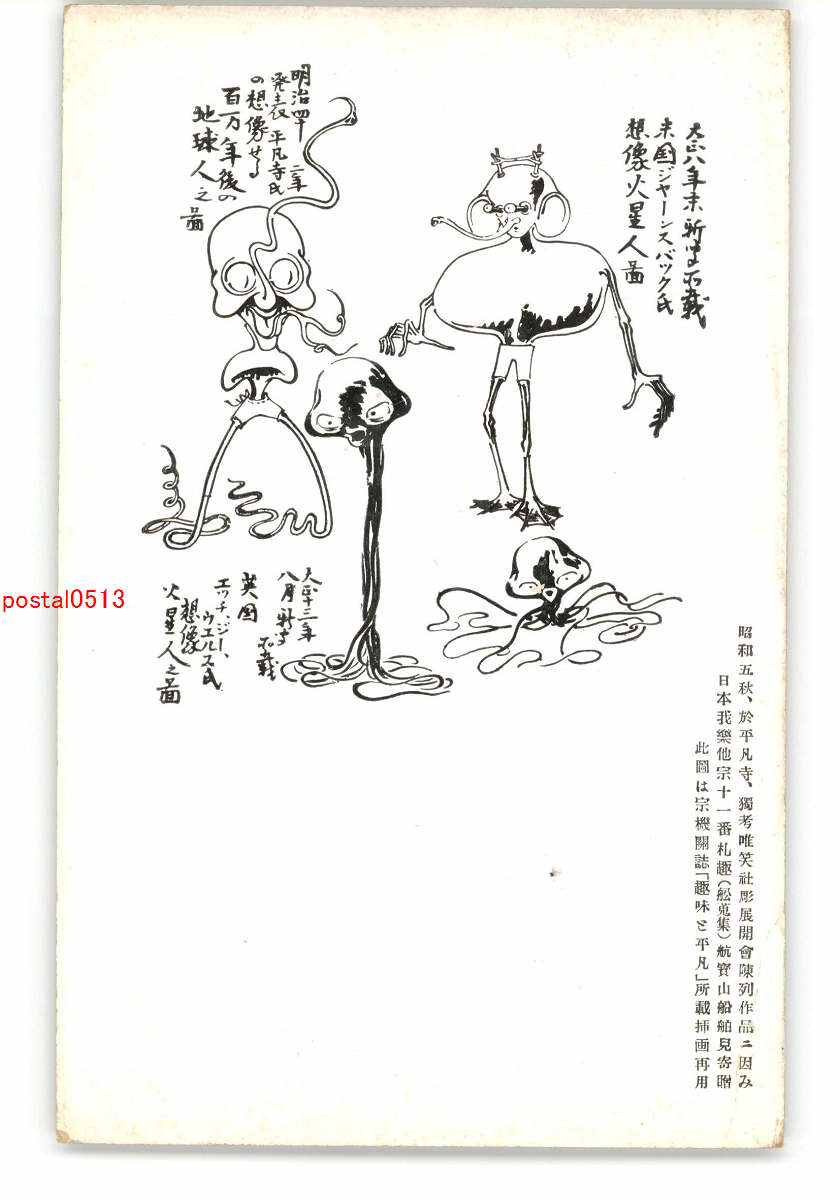 大正八年末新聞所載
米国ジャーンスバック氏
想像火星人圖
明治四十二年
発表平凡寺氏
の想像せる
百万年後の
地球人之圖
大正十三年
八月新聞所載
英国
エッチ、ジー、
ウエルス氏
想像
火星人之圖
postal0513
昭和五秋、於平凡寺、獨考唯笑社彫展開會陳列作品ニ因み
日本我樂他宗十一番札趣(舩蒐集)航寳山船舶兒寄贈
此圖は宗機關誌「趣味と平凡」所載挿画再用